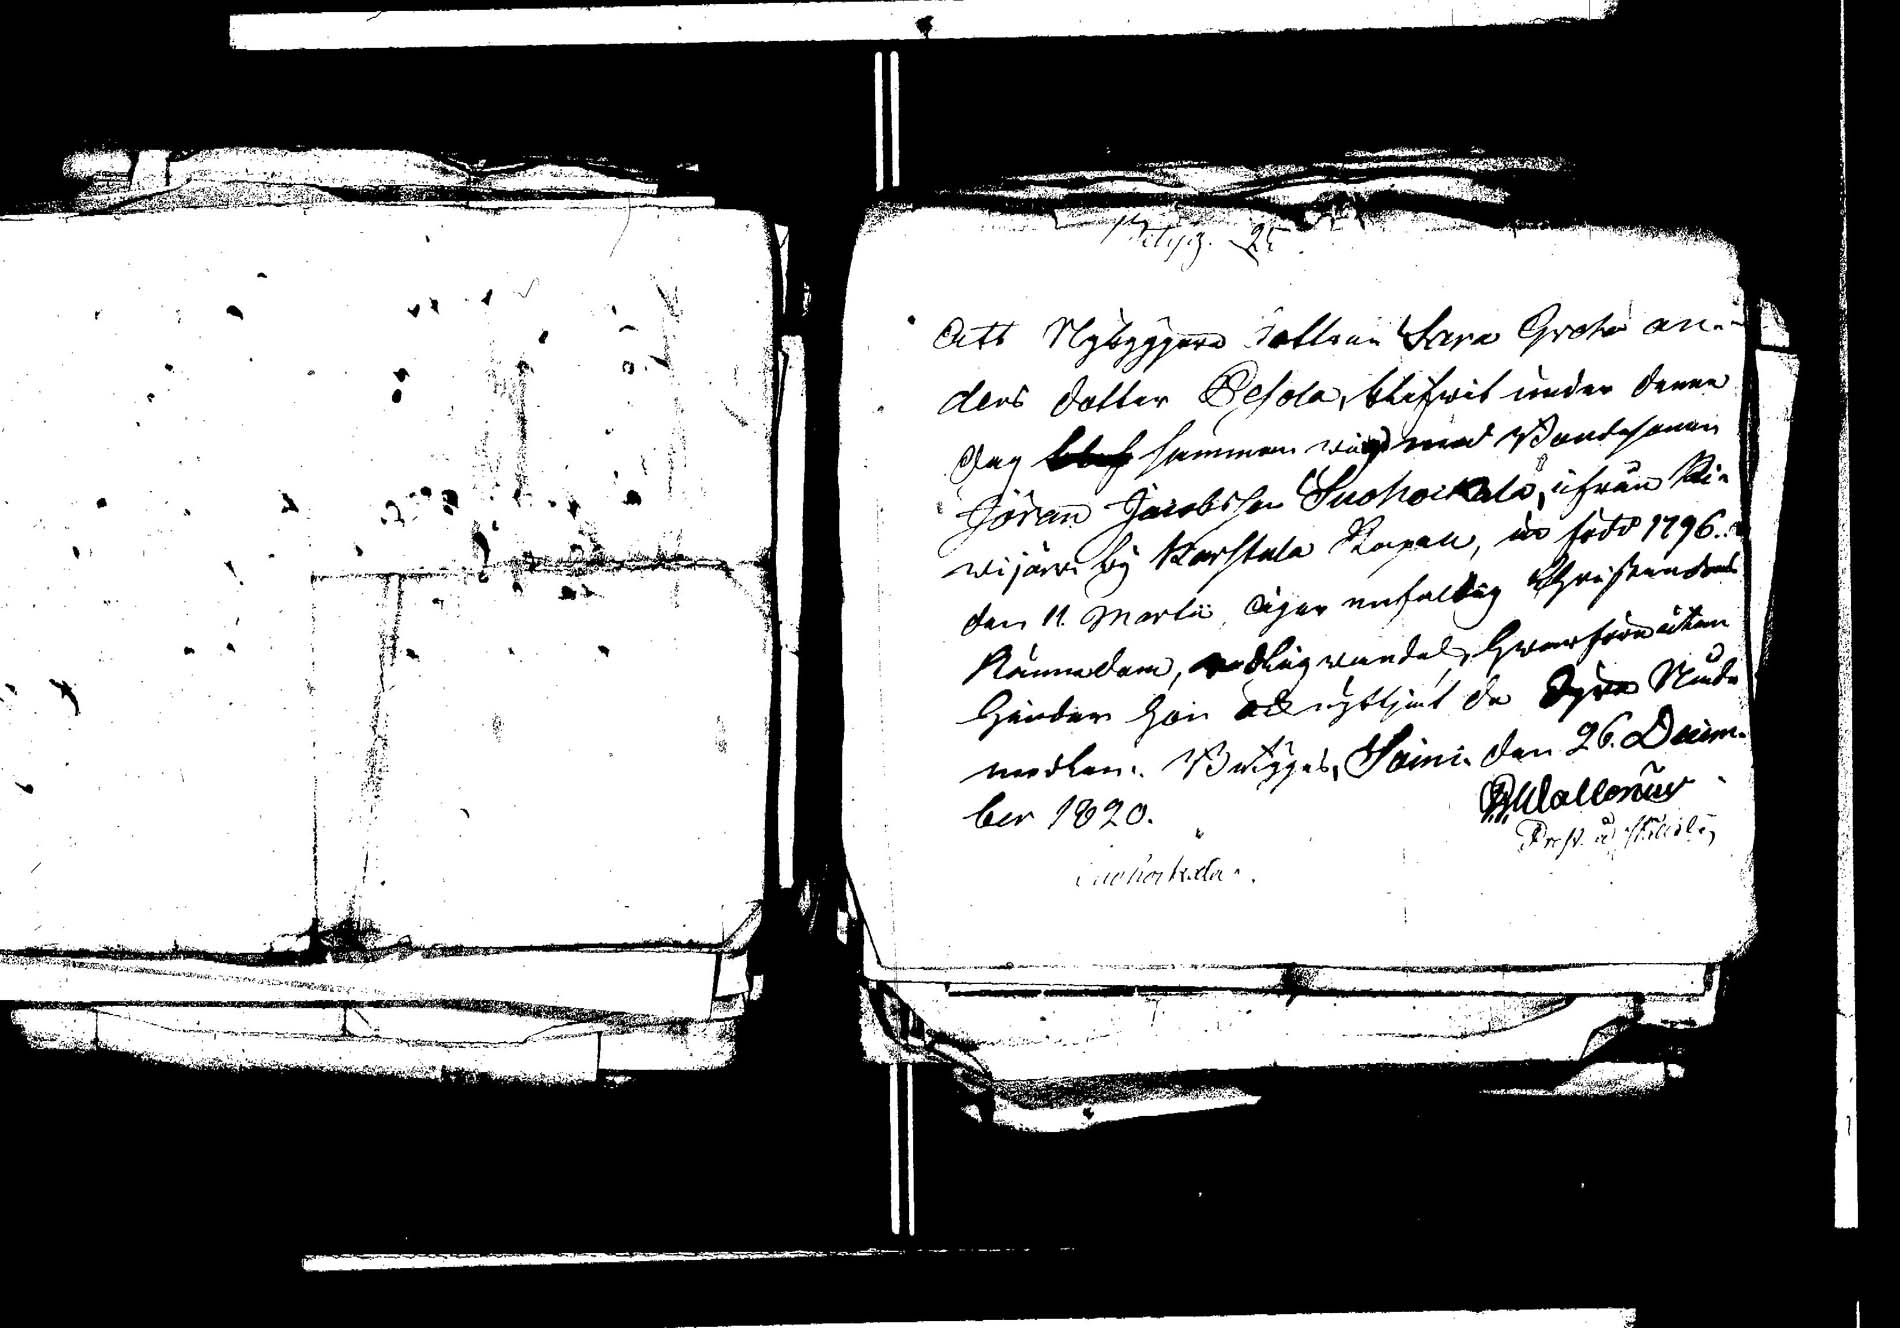 Betyg. 25.
Att Nybyggare dottren Sara Greta An-
ders dotter Pesola, blifwit under denna
dag sammanwigd med Bondesonen
Jöran Jacobsson Suohoikala, ifrån Ki-
wijärwi by Karstula Kapell, är född 1796.
den 11. Martii, äger enfaldig Christendoms
Kännedom, redlig wandel, hwarföre utan
hinder hon
medlen. Betygas, Soini den 26. Decem-
ber 1820.
Wallenius
Suohoikala.